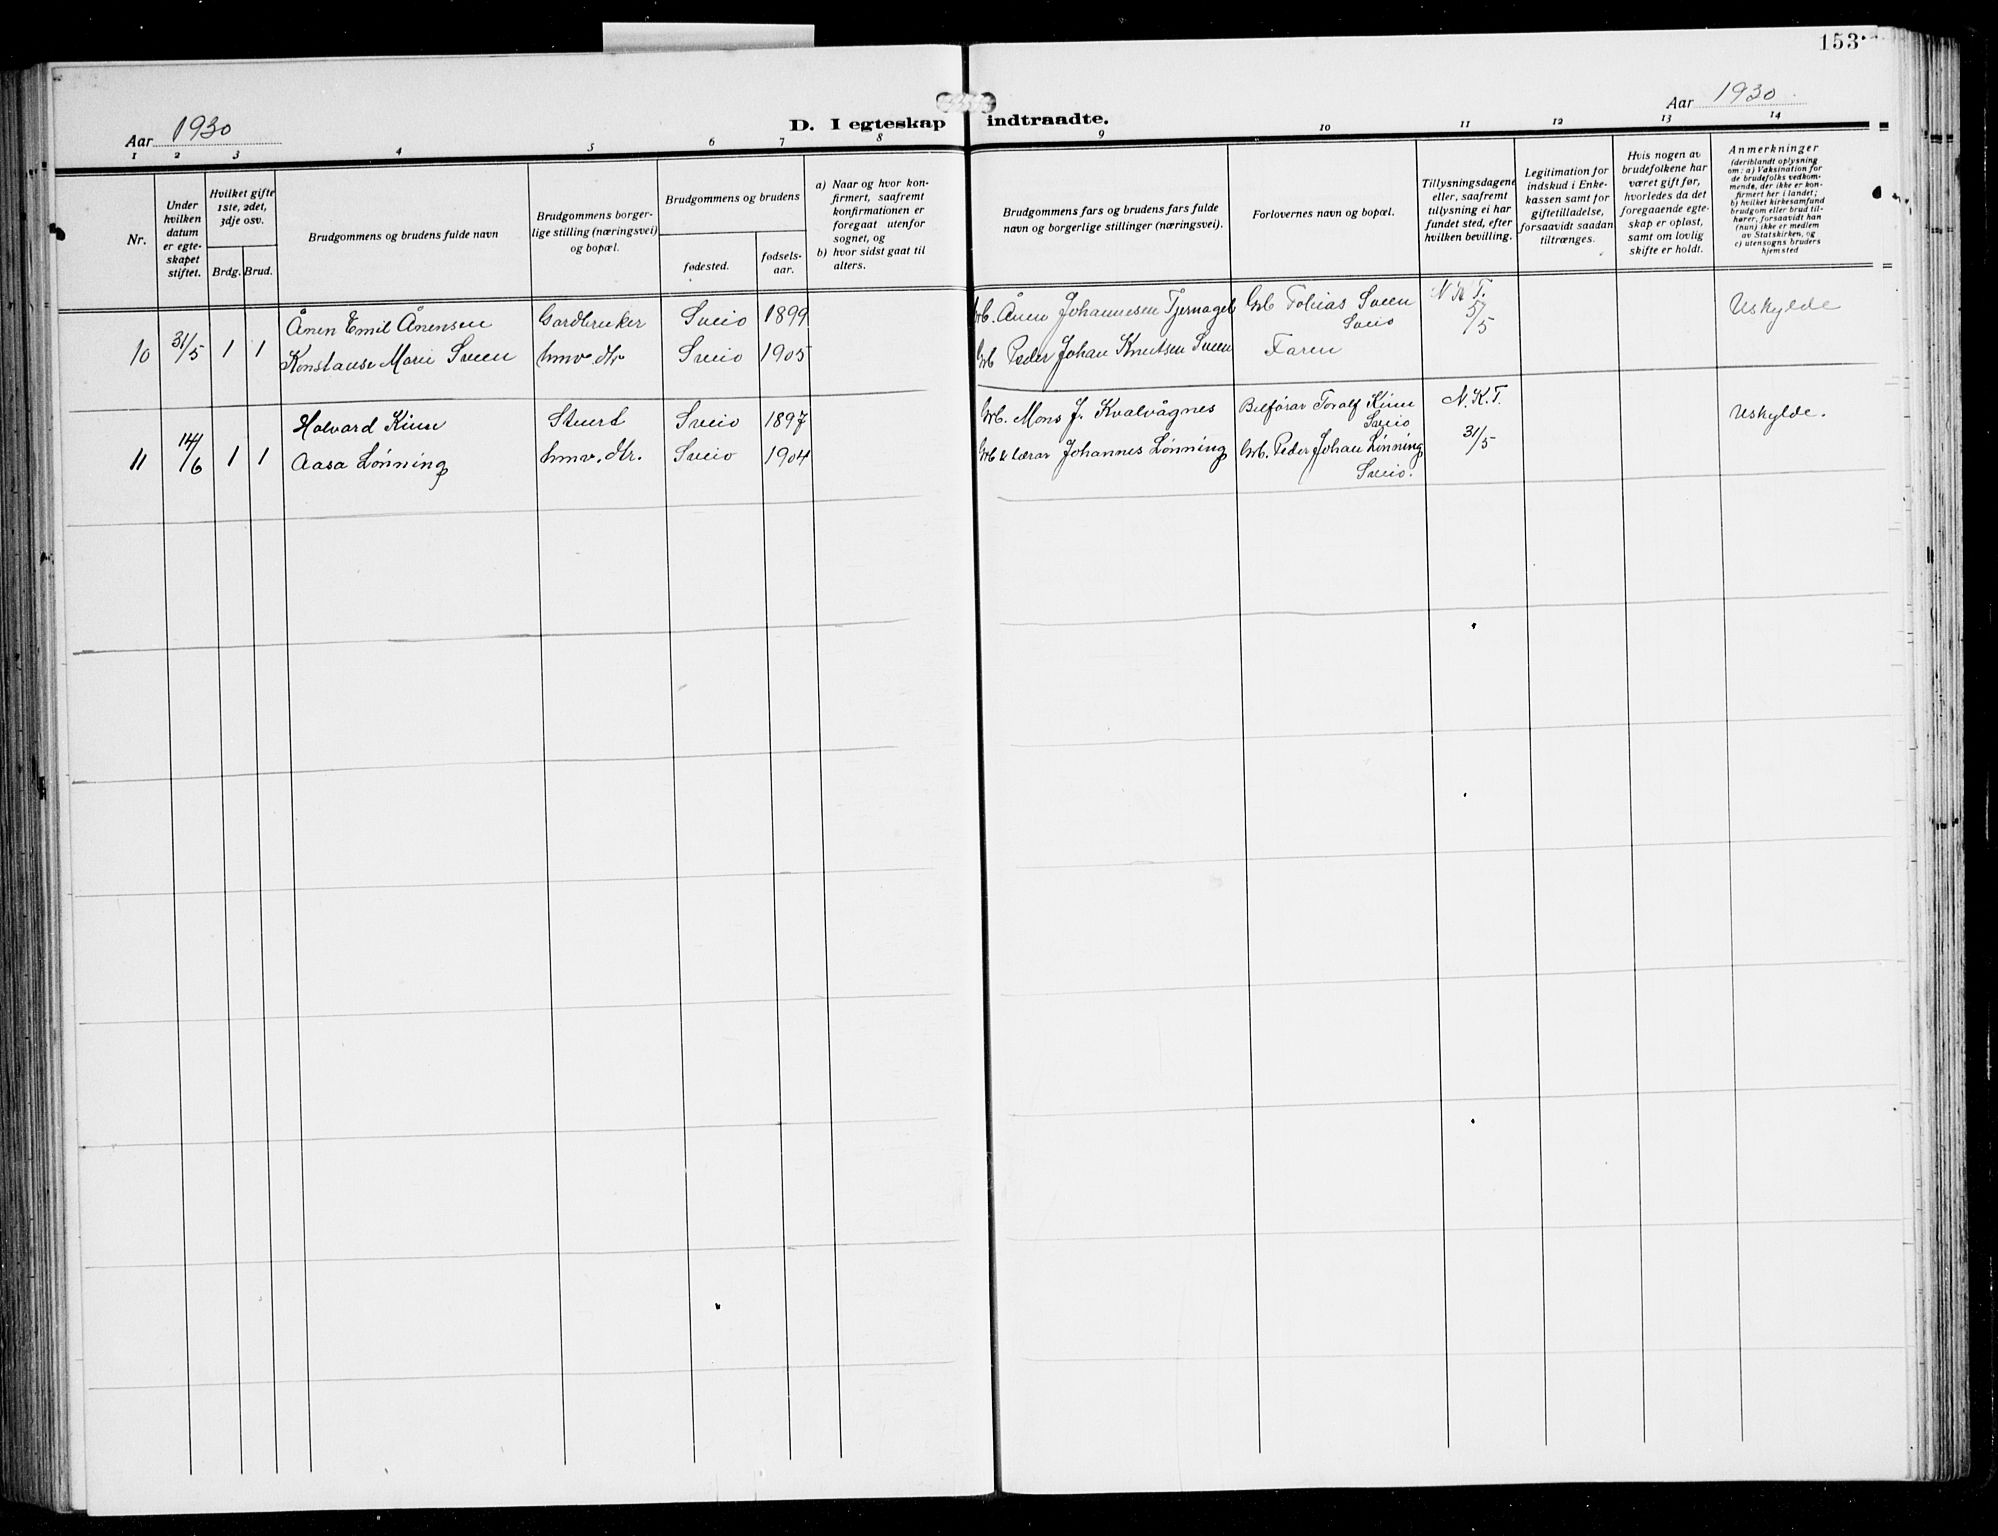 153.
Aar 1930
Aar 1930
D. I egteskap indtraadte.
1 2 3 4 5 6 7 8 9 10 11 12 13 14
Nr.
Under
hvilken
datum
er egte-
skapet
stiftet.
Hvilket gifte
1ste, 2det,
3dje osv.
Brdg. Brud.
Brudgommens og brudens fulde navn
Brudgommens borger-
lige stilling (næringsvei)
og bopæl.
Brudgommens og brudens
fødested.
fødsels-
aar.
a) Naar og hvor kon-
firmert, saafremt
konfirmationen er
foregaat utenfor
sognet, og
b) hvor sidst gaat til
alters.
Brudgommens fars og brudens fars fulde
navn og borgerlige stillinger (næringsvei).
Forlovernes navn og bopæl.
Tillysningsdagene
eller, saafremt
tillysning ei har
fundet sted, efter
hvilken bevilling.
Legitimation for
indskud i Enke-
kassen samt for
giftetilladelse,
forsaavidt saadan
tiltrænges.
Hvis nogen av
brudefolkene har
været gift før,
hvorledes da det
foregaaende egte-
skap er opløst,
samt om lovlig
skifte er holdt.
Anmerkninger
(deriblandt oplysning
om: a) Vaksination for
de brudefolks vedkom-
mende, der ikke er kon-
firmert her i landet;
b) hvilket kirkesamfund
brudgom eller brud til-
hører, forsaavidt han
(hun) ikke er medlem
av Statskirken, og
c) utensogns bruders
hjemsted
Ånen Emil Ånensen Gardbruker Sveio 1899 Grb. Ånen Johannesen Tjernagel Grb Tobias Sveen N.K.T. Uskylde
Sveio 5/5
10 31/5 1 1 Konstanse Marie Sveen hmv. dtr Sveio 1905 Grb Peder Johan Knutsen Sveen Faren
Halvard Kinn Stuert Sveio 1897 Grb. Mons J. Kvalvågnes Bilførar Toralf Kinn N.K.T. Uskylde.
Sveio
11 14/6 1 1 Aasa Lønning hmv. dtr. Sveio 1904 Grb & lærar Johannes Lønning Grb. Peder Johan Lønning 31/5
Sveio.